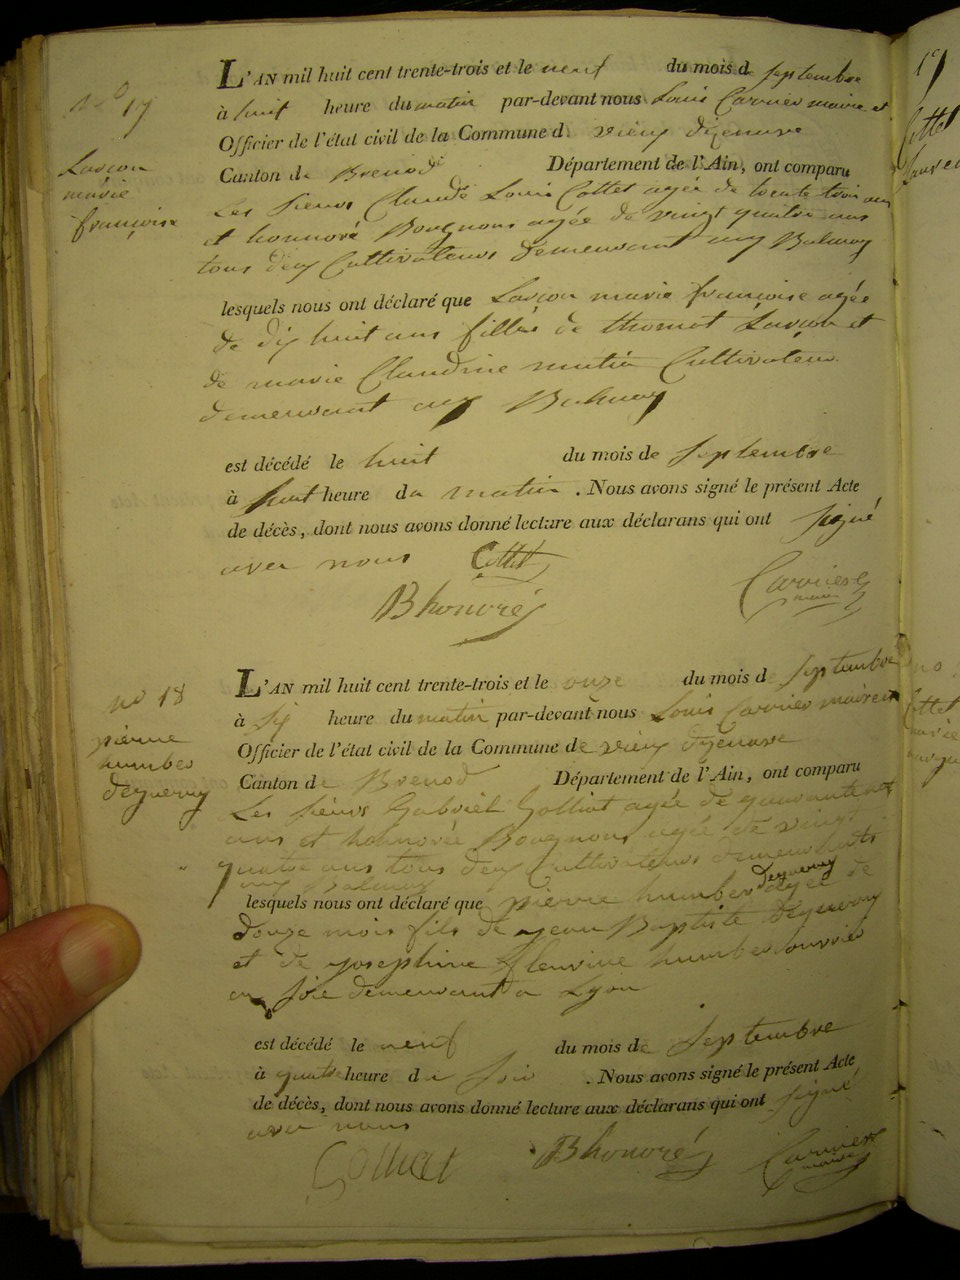 No 17
Lançon
marie
françoise
L'AN mil huit cent trente-trois et le neuf du mois d septembre
à huit heure du matin par-devant nous Louis Carrier maire et
Officier de l'état civil de la Commune d vieux dizenave
Canton de Brenod Département de l'Ain, ont comparu
Les sieurs Claude Louis Cottet agée de trente trois ans
et honnoré Bougnous agée de vingt quatre ans
tous deux Cultivateurs demeurant aux Balmay
lesquels nous ont déclaré que Lançon marie françoise agée
de dix huit ans fille de thomat Lançon et
de marie Claudine mutin Cultivateur
demeurant aux Balmay
est décédé le huit du mois de septembre
à huit heure du matin . Nous avons signé le présent Acte
de décès, dont nous avons donné lecture aux déclarans qui ont signé
avec nous Cottet
B honoré Carrier maire
no 18
pierre
humber
deguerry
L'AN mil huit cent trente-trois et le onze du mois d septembre
à six heure du matin par-devant nous Louis Carrier maire et
Officier de l'état civil de la Commune de vieux dizenave
Canton de Brenod Département de l'Ain, ont comparu
Les sieurs Gabriel Golliat agée de quarante
ans et honnorée Bougnous agée de vingt
quatre ans tous deux Cultivateurs demeurants
aux Balmay
lesquels nous ont déclaré que pierre humber deguerry agée de
douze mois fils de jean Baptiste Deguerry
et de josephine fleurine humber ouvrier
en soie demeurant a Lyon
est décédé le neuf du mois de septembre
à quatre heure du soir . Nous avons signé le présent Acte
de décès, dont nous avons donné lecture aux déclarans qui ont signé
avec nous
Golliat B honoré Carrier maire